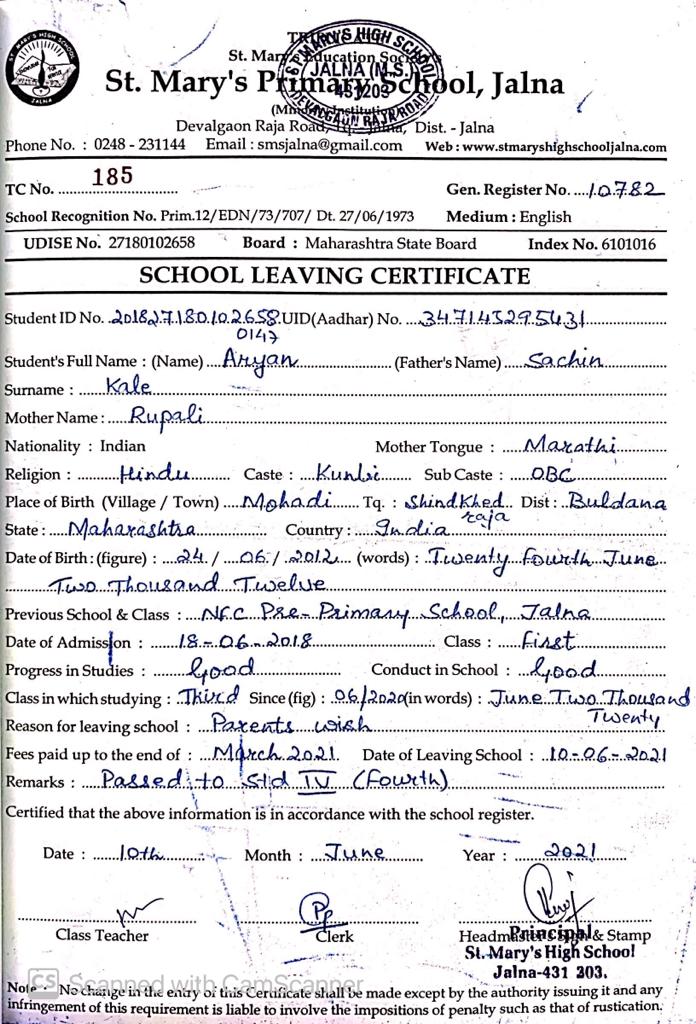 ST. MARY'S HIGH SCHOOL
JALNA
St. Mary's Education Society's
St. Mary's Primary School, Jalna
ST. MARY'S HIGH SCHOOL
JALNA (M.S.)
431203
DEVALGAON RAJA ROAD
Devalgaon Raja Road, Tq. Jalna, Dist. - Jalna
Phone No. : 0248 - 231144 Email : smsjalna@gmail.com Web : www.stmaryshighschooljalna.com
TC No. 185 Gen. Register No. 10782
School Recognition No. Prim.12/EDN/73/707/ Dt. 27/06/1973 Medium : English
UDISE No. 27180102658 Board : Maharashtra State Board Index No. 6101016
SCHOOL LEAVING CERTIFICATE
Student ID No. 201827180102658 UID(Aadhar) No. 347145295431
0147
Student's Full Name : (Name) Aryan (Father's Name) Sachin
Surname : Kale
Mother Name : Rupali
Nationality : Indian Mother Tongue : Marathi
Religion : Hindu Caste : Kunbi Sub Caste : OBC
Place of Birth (Village / Town) Mohadi Tq. : Shindkhed Dist : Buldana
raja
State : Maharashtra Country : India
Date of Birth : (figure) : 24 / 06 / 2012 (words) : Twenty Fourth June
Two Thousand Twelve
Previous School & Class : NFC Pre-Primary School, Jalna
Date of Admission : 18-06-2018 Class : First
Progress in Studies : Good Conduct in School : Good
Class in which studying : Third Since (fig) : 06/2020 (in words) : June Two Thousand
Twenty
Reason for leaving school : Parents wish
Fees paid up to the end of : March 2021. Date of Leaving School : 10-06-2021
Remarks : Passed to Std IV (Fourth)
Certified that the above information is in accordance with the school register.
Date : 10th Month : June Year : 2021
Class Teacher Clerk Headmaster's Sign & Stamp
Principal
St. Mary's High School
Jalna-431 203.
CS Scanned with CamScanner
Note - No change in the entry of this Certificate shall be made except by the authority issuing it and any
infringement of this requirement is liable to involve the impositions of penalty such as that of rustication.